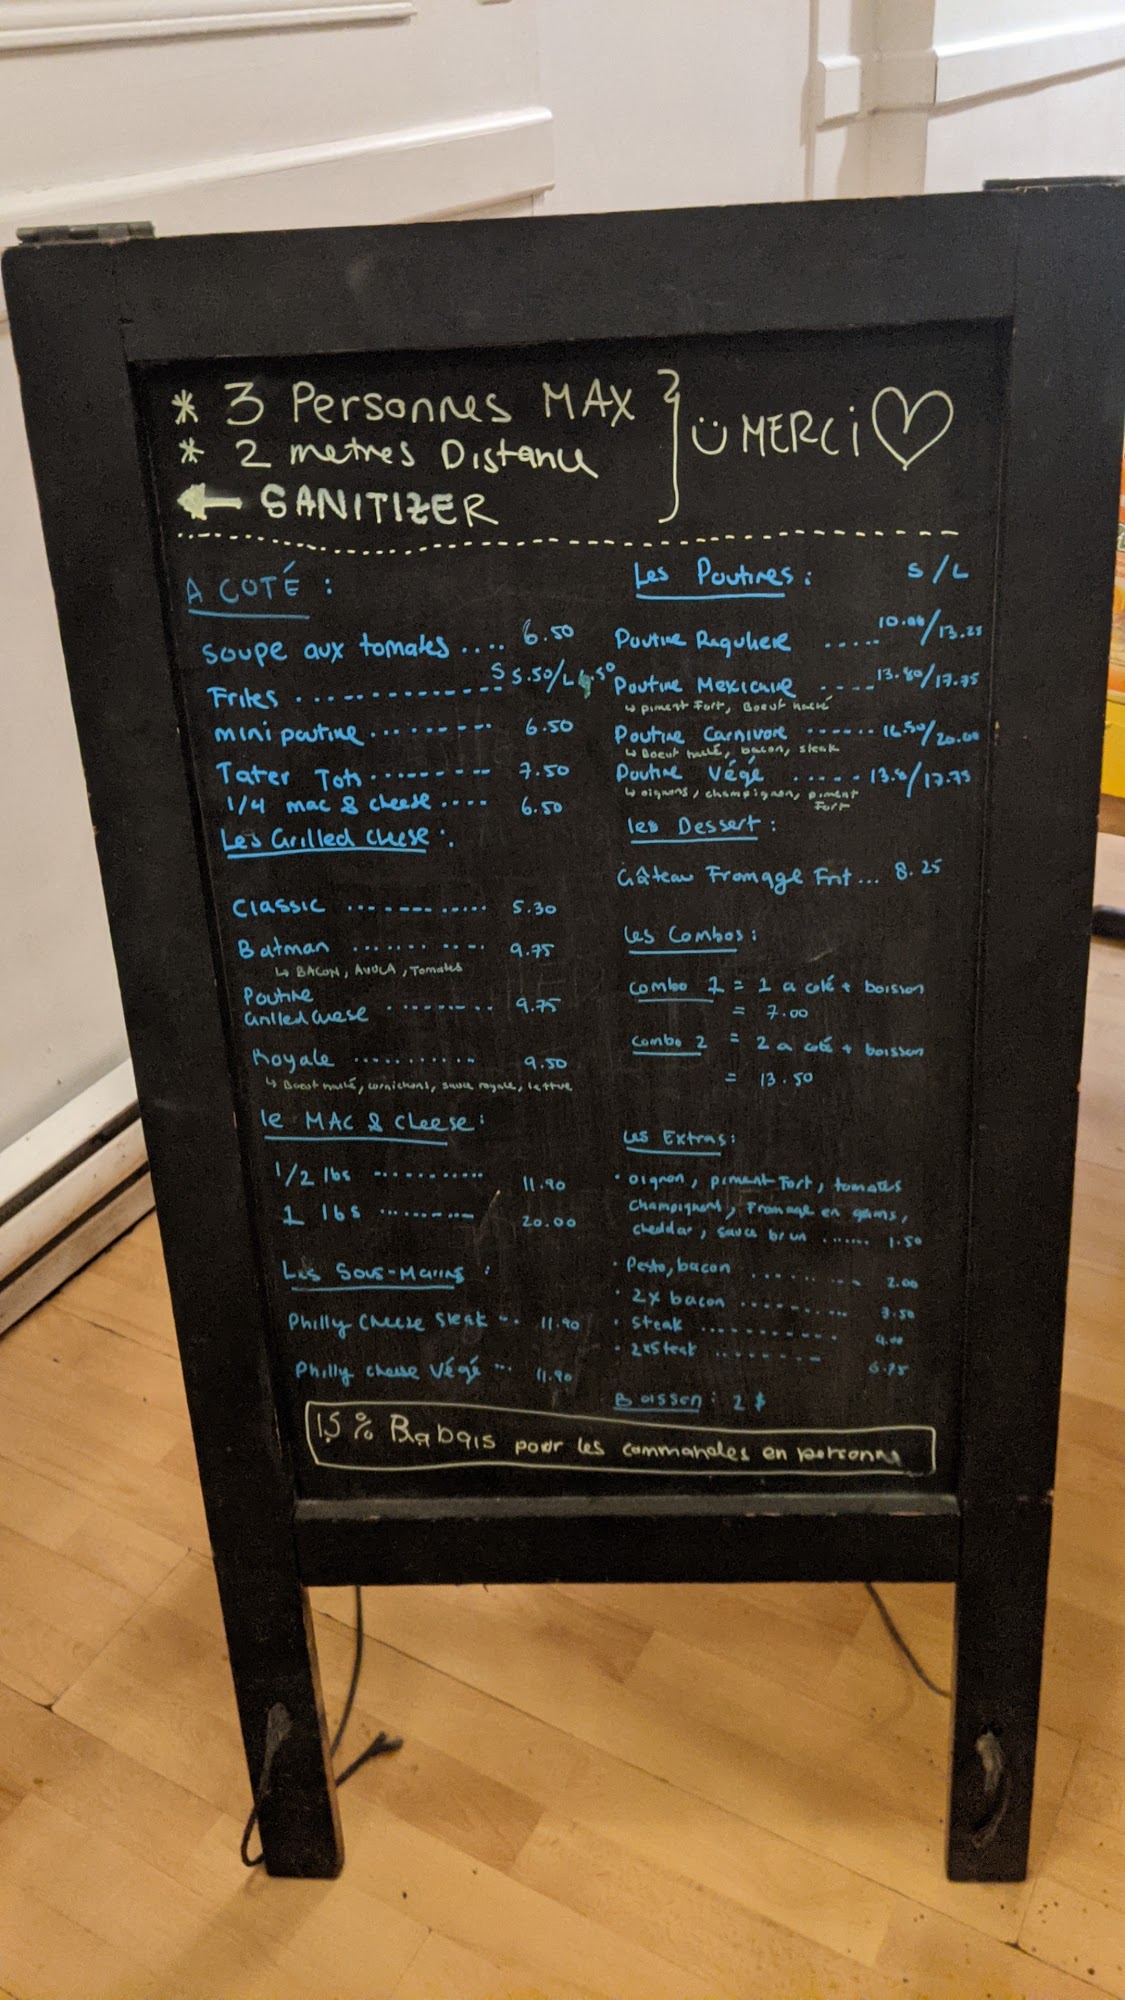 * 3 Personnes MAX
* 2 metres Distance
← SANITIZER
MERCi
A COTÉ :
Soupe aux tomates .... 6.50
Frites ............. S 5.50/L
mini poutine ........ 6.50
Tater Tots ......... 7.50
1/4 mac & cheese .... 6.50
Les Grilled cheese :
Classic ............ 5.30
Batman ........... 9.75
↳ BACON, AVOCA, Tomates
Poutine
Grilled cheese ......... 9.75
Royale ........... 9.50
↳ Boeuf haché, cornichons, sauce royale, lettue
le MAC & cheese :
1/2 lbs ............ 11.90
1 lbs .......... 20.00
Les Sous-Marins :
Philly cheese steak ... 11.90
Philly cheese végé ... 11.90
Les Poutines : S/L
Poutine Reguliere ..... 10.00/13.25
Poutine Mexicaine .... 13.80/17.75
↳ piment Fort, Boeuf haché
Poutine Carnivore ....... 16.50/20.00
↳ Boeuf haché, bacon, steak
Poutine Végé ..... 13.8/17.75
↳ oignons, champignon, piment
Fort
les Dessert :
Gâteau Fromage Frit ... 8.25
les Combos :
combo 1 = 1 a coté + boisson
= 7.00
combo 2 = 2 a coté + boisson
= 13.50
Les Extras :
• oignon, piment Fort, tomates
champignons, Fromage en grains,
cheddar, sauce brun ....... 1.50
• Pesto, bacon ........... 2.00
• 2x bacon ........... 3.50
• steak ............. 4.00
• 2xSteak .......... 6.75
Boisson : 2 $
15 % Rabais pour les commandes en personne